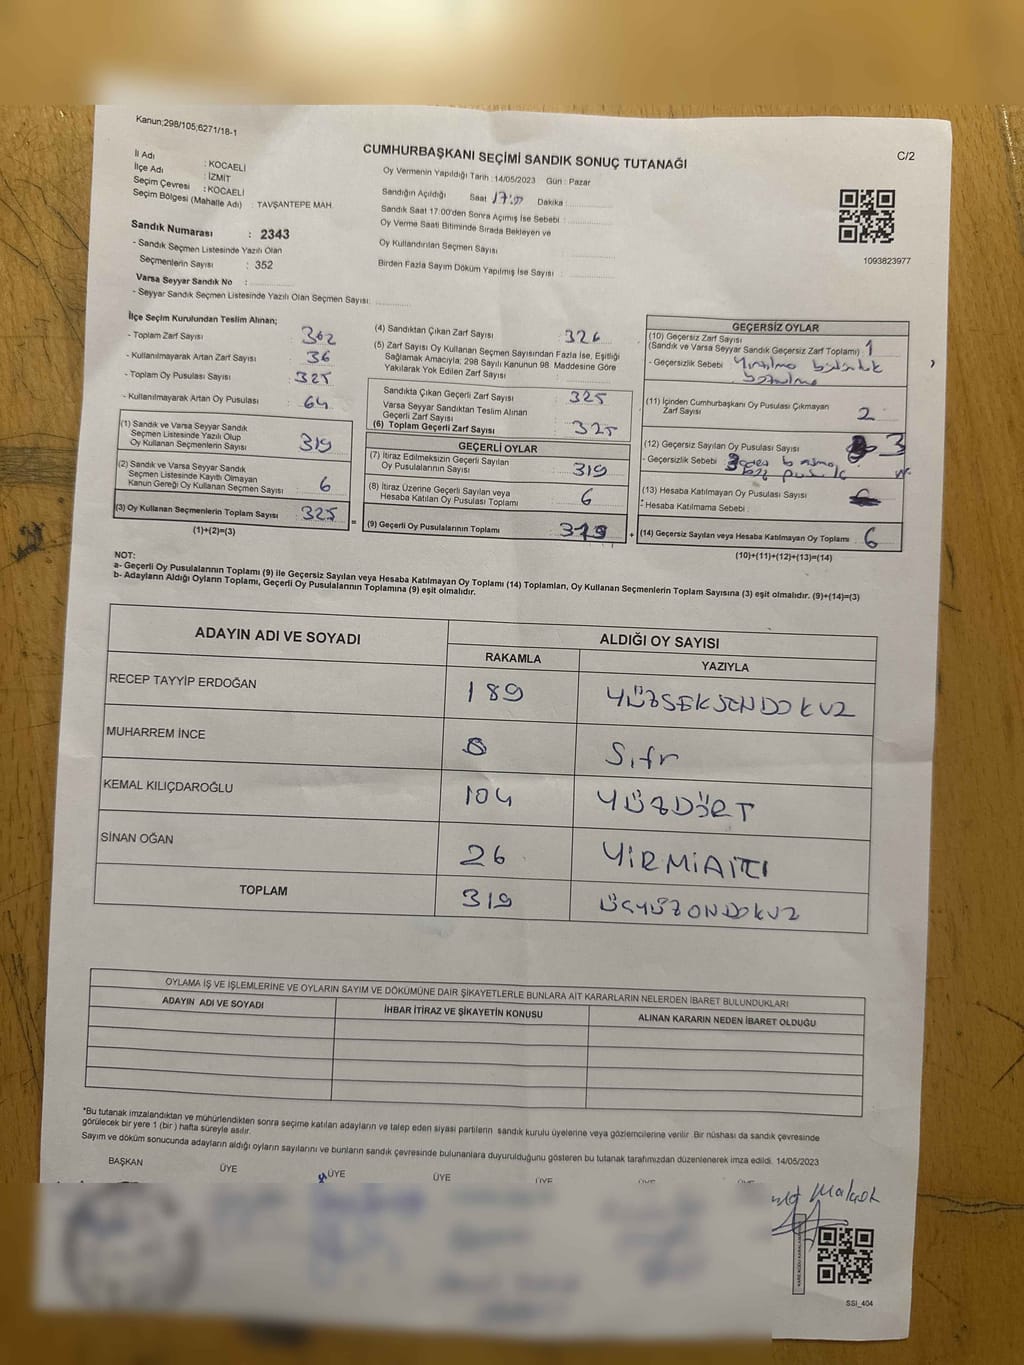 Kanun;298/105;6271/18-1
CUMHURBAŞKANI SEÇİMİ SANDIK SONUÇ TUTANAĞI
C/2
İl Adı : KOCAELİ
İlçe Adı : İZMİT
Seçim Çevresi : KOCAELİ
Seçim Bölgesi (Mahalle Adı) : TAVŞANTEPE MAH.
Oy Vermenin Yapıldığı Tarih : 14/05/2023 Gün : Pazar
Sandığın Açıldığı Saat 17:00 Dakika :
Sandık Saat 17:00'den Sonra Açımış İse Sebebi :
Oy Verme Saati Bitiminde Sırada Bekleyen ve
Oy Kullandırılan Seçmen Sayısı
Birden Fazla Sayım Döküm Yapılmış İse Sayısı :
1093823977
Sandık Numarası : 2343
- Sandık Seçmen Listesinde Yazılı Olan
Seçmenlerin Sayısı : 352
Varsa Seyyar Sandık No :
- Seyyar Sandık Seçmen Listesinde Yazılı Olan Seçmen Sayısı:
İlçe Seçim Kurulundan Teslim Alınan;
- Toplam Zarf Sayısı 362
- Kullanılmayarak Artan Zarf Sayısı 36
- Toplam Oy Pusulası Sayısı : 325
- Kullanılmayarak Artan Oy Pusulası 64
(1) Sandık ve Varsa Seyyar Sandık
Seçmen Listesinde Yazılı Olup
Oy Kullanan Seçmenlerin Sayısı 319
(2) Sandık ve Varsa Seyyar Sandık
Seçmen Listesinde Kayıtlı Olmayan
Kanun Gereği Oy Kullanan Seçmen Sayısı 6
(3) Oy Kullanan Seçmenlerin Toplam Sayısı 325
(1)+(2)=(3)
(4) Sandıktan Çıkan Zarf Sayısı 326
(5) Zarf Sayısı Oy Kullanan Seçmen Sayısından Fazla İse, Eşitliği
Sağlamak Amacıyla; 298 Sayılı Kanunun 98 Maddesine Göre
Yakılarak Yok Edilen Zarf Sayısı
Sandıkta Çıkan Geçerli Zarf Sayısı 325
Varsa Seyyar Sandıktan Teslim Alınan
Geçerli Zarf Sayısı
(6) Toplam Geçerli Zarf Sayısı : 325
GEÇERLİ OYLAR
(7) İtiraz Edilmeksizin Geçerli Sayılan
Oy Pusulalarının Sayısı : 319
(8) İtiraz Üzerine Geçerli Sayılan veya
Hesaba Katılan Oy Pusulası Toplamı : 6
= (9) Geçerli Oy Pusulalarının Toplamı : 319 +
GEÇERSİZ OYLAR
(10) Geçersiz Zarf Sayısı
(Sandık ve Varsa Seyyar Sandık Geçersiz Zarf Toplamı) 1
- Geçersizlik Sebebi
(11) İçinden Cumhurbaşkanı Oy Pusulası Çıkmayan
Zarf Sayısı 2
(12) Geçersiz Sayılan Oy Pusulası Sayısı 3
- Geçersizlik Sebebi
(13) Hesaba Katılmayan Oy Pusulası Sayısı
- Hesaba Katılmama Sebebi :
(14) Geçersiz Sayılan veya Hesaba Katılmayan Oy Toplamı 6
(10)+(11)+(12)+(13)=(14)
NOT:
a- Geçerli Oy Pusulalarının Toplamı (9) ile Geçersiz Sayılan veya Hesaba Katılmayan Oy Toplamı (14) Toplamları, Oy Kullanan Seçmenlerin Toplam Sayısına (3) eşit olmalıdır. (9)+(14)=(3)
b- Adayların Aldığı Oyların Toplamı, Geçerli Oy Pusulalarının Toplamına (9) eşit olmalıdır.
ADAYIN ADI VE SOYADI ALDIĞI OY SAYISI
RAKAMLA YAZIYLA
RECEP TAYYİP ERDOĞAN 189 YÜZSEKSENDOKUZ
MUHARREM İNCE 0 Sıfır
KEMAL KILIÇDAROĞLU 104 YÜZDÖRT
SİNAN OĞAN 26 YİRMİALTI
TOPLAM 319 ÜÇYÜZONDOKUZ
OYLAMA İŞ VE İŞLEMLERİNE VE OYLARIN SAYIM VE DÖKÜMÜNE DAİR ŞİKAYETLERLE BUNLARA AİT KARARLARIN NELERDEN İBARET BULUNDUKLARI
ADAYIN ADI VE SOYADI İHBAR İTİRAZ VE ŞİKAYETİN KONUSU ALINAN KARARIN NEDEN İBARET OLDUĞU
*Bu tutanak imzalandıktan ve mühürlendikten sonra seçime katılan adayların ve talep eden siyasi partilerin sandık kurulu üyelerine veya gözlemcilerine verilir. Bir nüshası da sandık çevresinde
görülecek bir yere 1 (bir) hafta süreyle asılır.
Sayım ve döküm sonucunda adayların aldığı oyların sayılarını ve bunların sandık çevresinde bulunanlara duyurulduğunu gösteren bu tutanak tarafımızdan düzenlenerek imza edildi. 14/05/2023
BAŞKAN ÜYE ÜYE ÜYE ÜYE
SSI_404